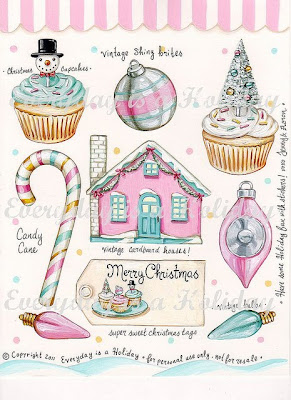 Vintage Shiny Brites
• Christmas Cupcakes •
Everyday is a Holiday
Everyday is a Holiday
Candy
Cane
vintage cardboard houses!
Merry Christmas
Everyday is a Holiday
vintage bulbs
super sweet christmas tags
Have some Holiday fun with stickers! xoxo
© Copyright 2011 Everyday is a Holiday • for personal use only - not for resale •